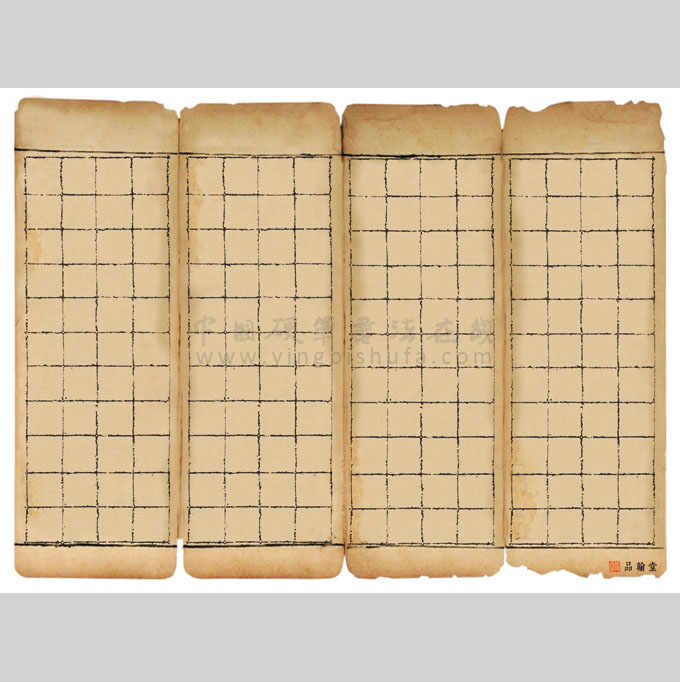 中国硬笔书法在线
www.yingbishufa.com
品翰堂